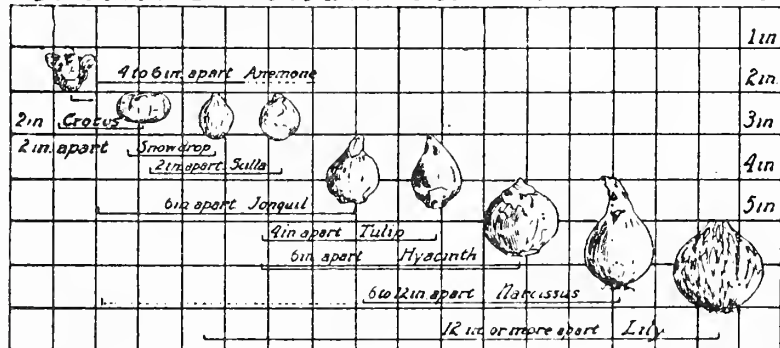 1in
4 to 6 in. apart Anemone
2in.
2in Crocus
3in
2 in. apart
Snowdrop
2 in. apart Scilla
4in
6in apart Jonquil
5in
4in apart Tulip
6in. apart Hyacinth
6 to 12 in. apart Narcissus
12 in. or more apart Lily